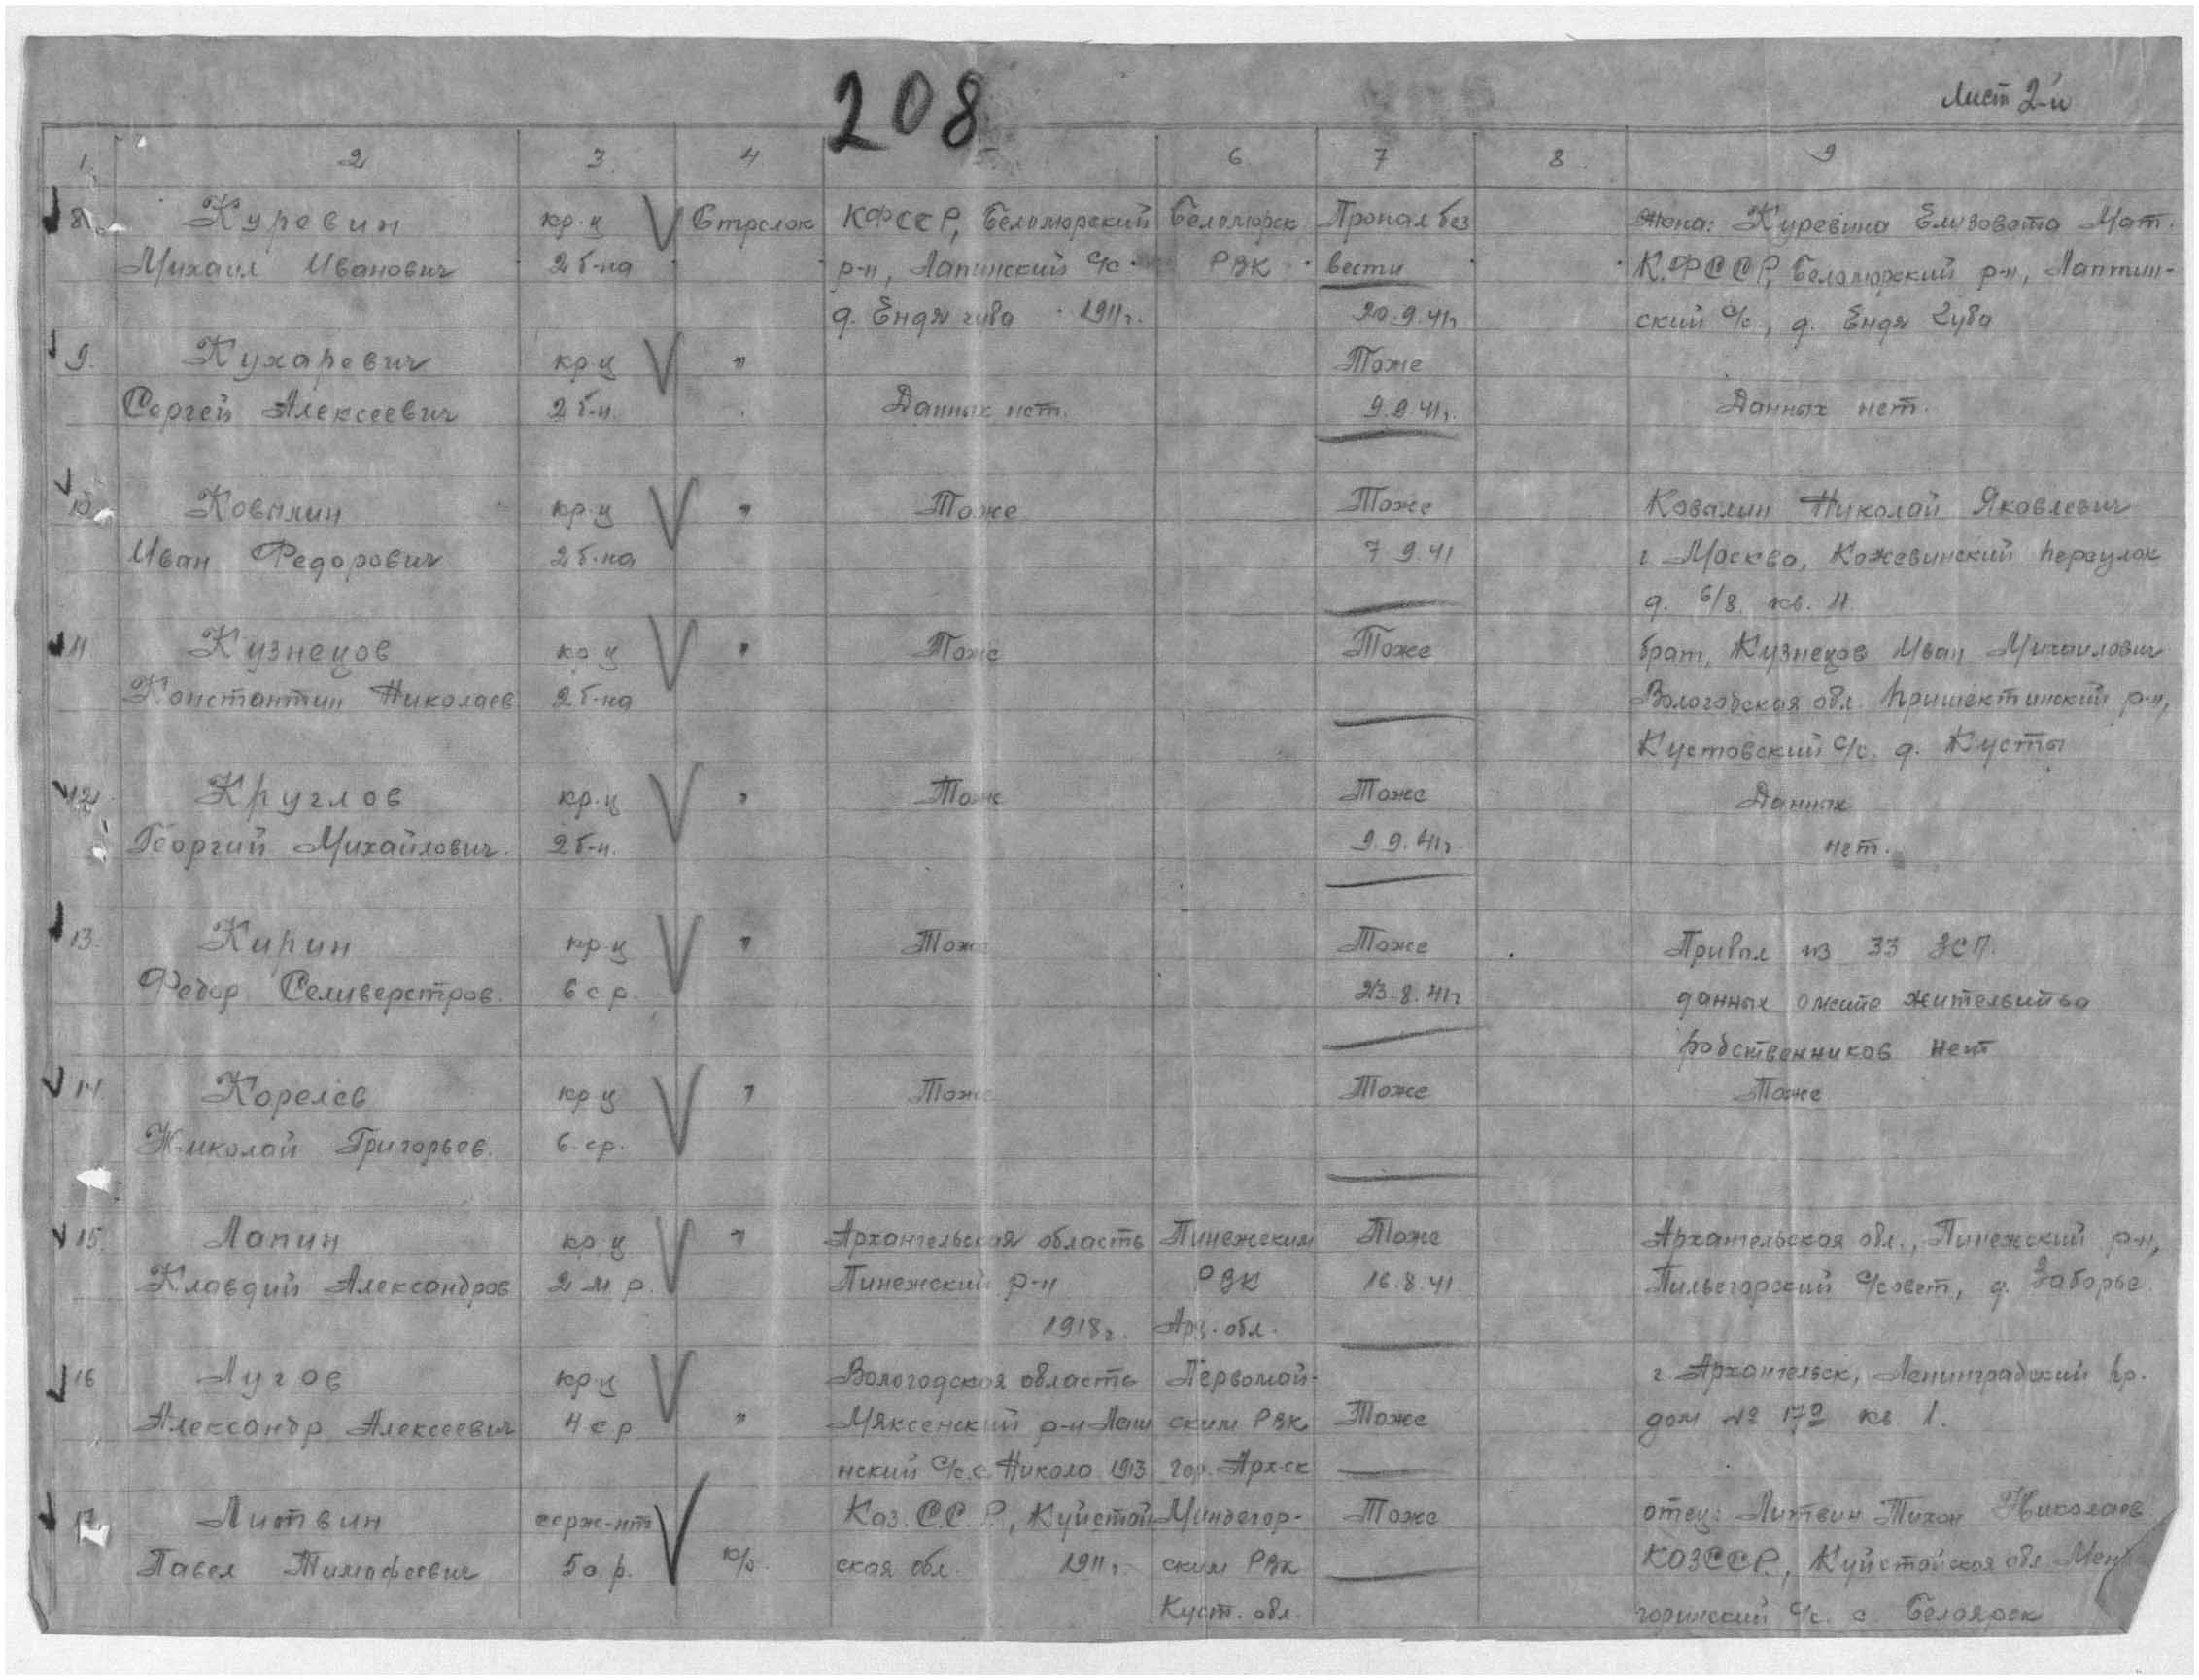 208
Лист 2-й
1. 2 3 4 5 6 7 8 9
8 Куревин кр-ц Стрелок КФССР, Беломорский Беломорск Пропал без жена: Куревина Елизовета Мат.
Михаил Иванович 2 б-на р-н, Лапинский с/с РВК вести К.ФССР, Беломорский р-н, Лаптин-
д. Ендя губа 1911г. 20.9.41г ский с/с., д. Ендя Губа
9. Кухаревич кр-ц " Тоже
Сергей Алексеевич 2 б-н. Данных нет. 9.9.41г. Данных нет.
10 Ковылин кр-ц " Тоже Тоже Ковалин Николай Яковлевич
Иван Федорович 2 б-на 7 9.41 г Москва, Кожевинский переулок
д. 6/8 кв. 11
11 Кузнецов кр-ц " Тоже Тоже брат, Кузнецов Иван Михаилович
Константин Николаев 2 б-на Вологодская обл. р-н,
Кустовский с/с. д. Кусты
12 Круглов кр-ц " Тоже Тоже Данных
Георгий Михайлович. 2 б-н. 9.9.41г нет.
13. Кирин кр-ц " Тоже Тоже Прибыл из 33 ЗСП.
Федор Селиверстров. 6 с р. 23.8.41г данных
родственников нет
14. Корелев кр-ц " Тоже Тоже Тоже
Николай Григорьев. 6. ср.
15 Лапин кр-ц " Архангельская область Пинежским Тоже Архангельская обл., Пинежский р-н,
Клавдий Александров 2 м р. Пинежский р-н РВК 16.8.41 Пильегорский с/совет, д. Заборье.
1918г. Арх. обл.
16 Лугов кр-ц Вологодская область Первомай- г. Архангельск, Ленинградский пр.
Александр Алексеевич 4 с р " Мяксенский р-н Лени ским РВК Тоже дом № кв 1.
нский с/с. с. Николо 1913 гор. Арх-ск
17 Литвин серж-нт Каз. С.С.Р., Куйстай Тоже отец: Литвин Тихон Николаев
Павел Тимофеевич 5 о. р. к/о. ская обл. 1911г. ским РВК КОЗССР., Куйстайская обл.
Куст. обл. с/с. с. Белоярск